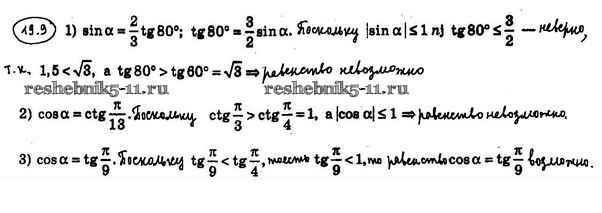 19.9 1) sinα = 2/3 tg80°; tg80° = 3/2 sinα. Поскольку |sinα| ≤ 1 то tg80° ≤ 3/2 — неверно,
т.к. 1,5 < √3, а tg80° > tg60° = √3 ⇒ равенство невозможно
reshebnik5-11.ru reshebnik5-11.ru
2) cosα = ctg π/13. Поскольку ctg π/3 > ctg π/4 = 1, а |cosα| ≤ 1 ⇒ равенство невозможно.
3) cosα = tg π/9. Поскольку tg π/9 < tg π/4, то есть tg π/9 < 1, то равенство cosα = tg π/9 возможно.